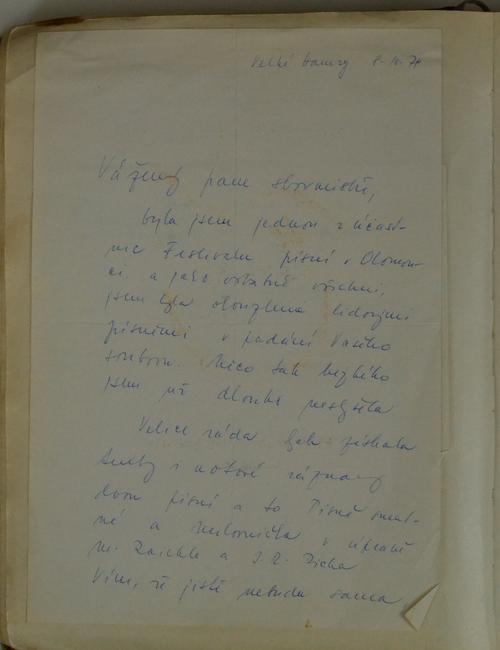 Velké Hamry 8. 10. 74
Vážený pane sbormistře,
byla jsem jednou z účast-
nic Festivalu písní v Olomou-
ci a jako ostatně všichni,
jsem byla okouzlena lidovými
písněmi v podání Vašeho
souboru. Něco tak hezkého
jsem už dlouho neslyšela
Velice ráda bych získala
texty i notové záznamy
dvou písní a to Písně smut-
né a v úpravě
M. Raichla a J. Z.
Vím, že jistě nebudu sama